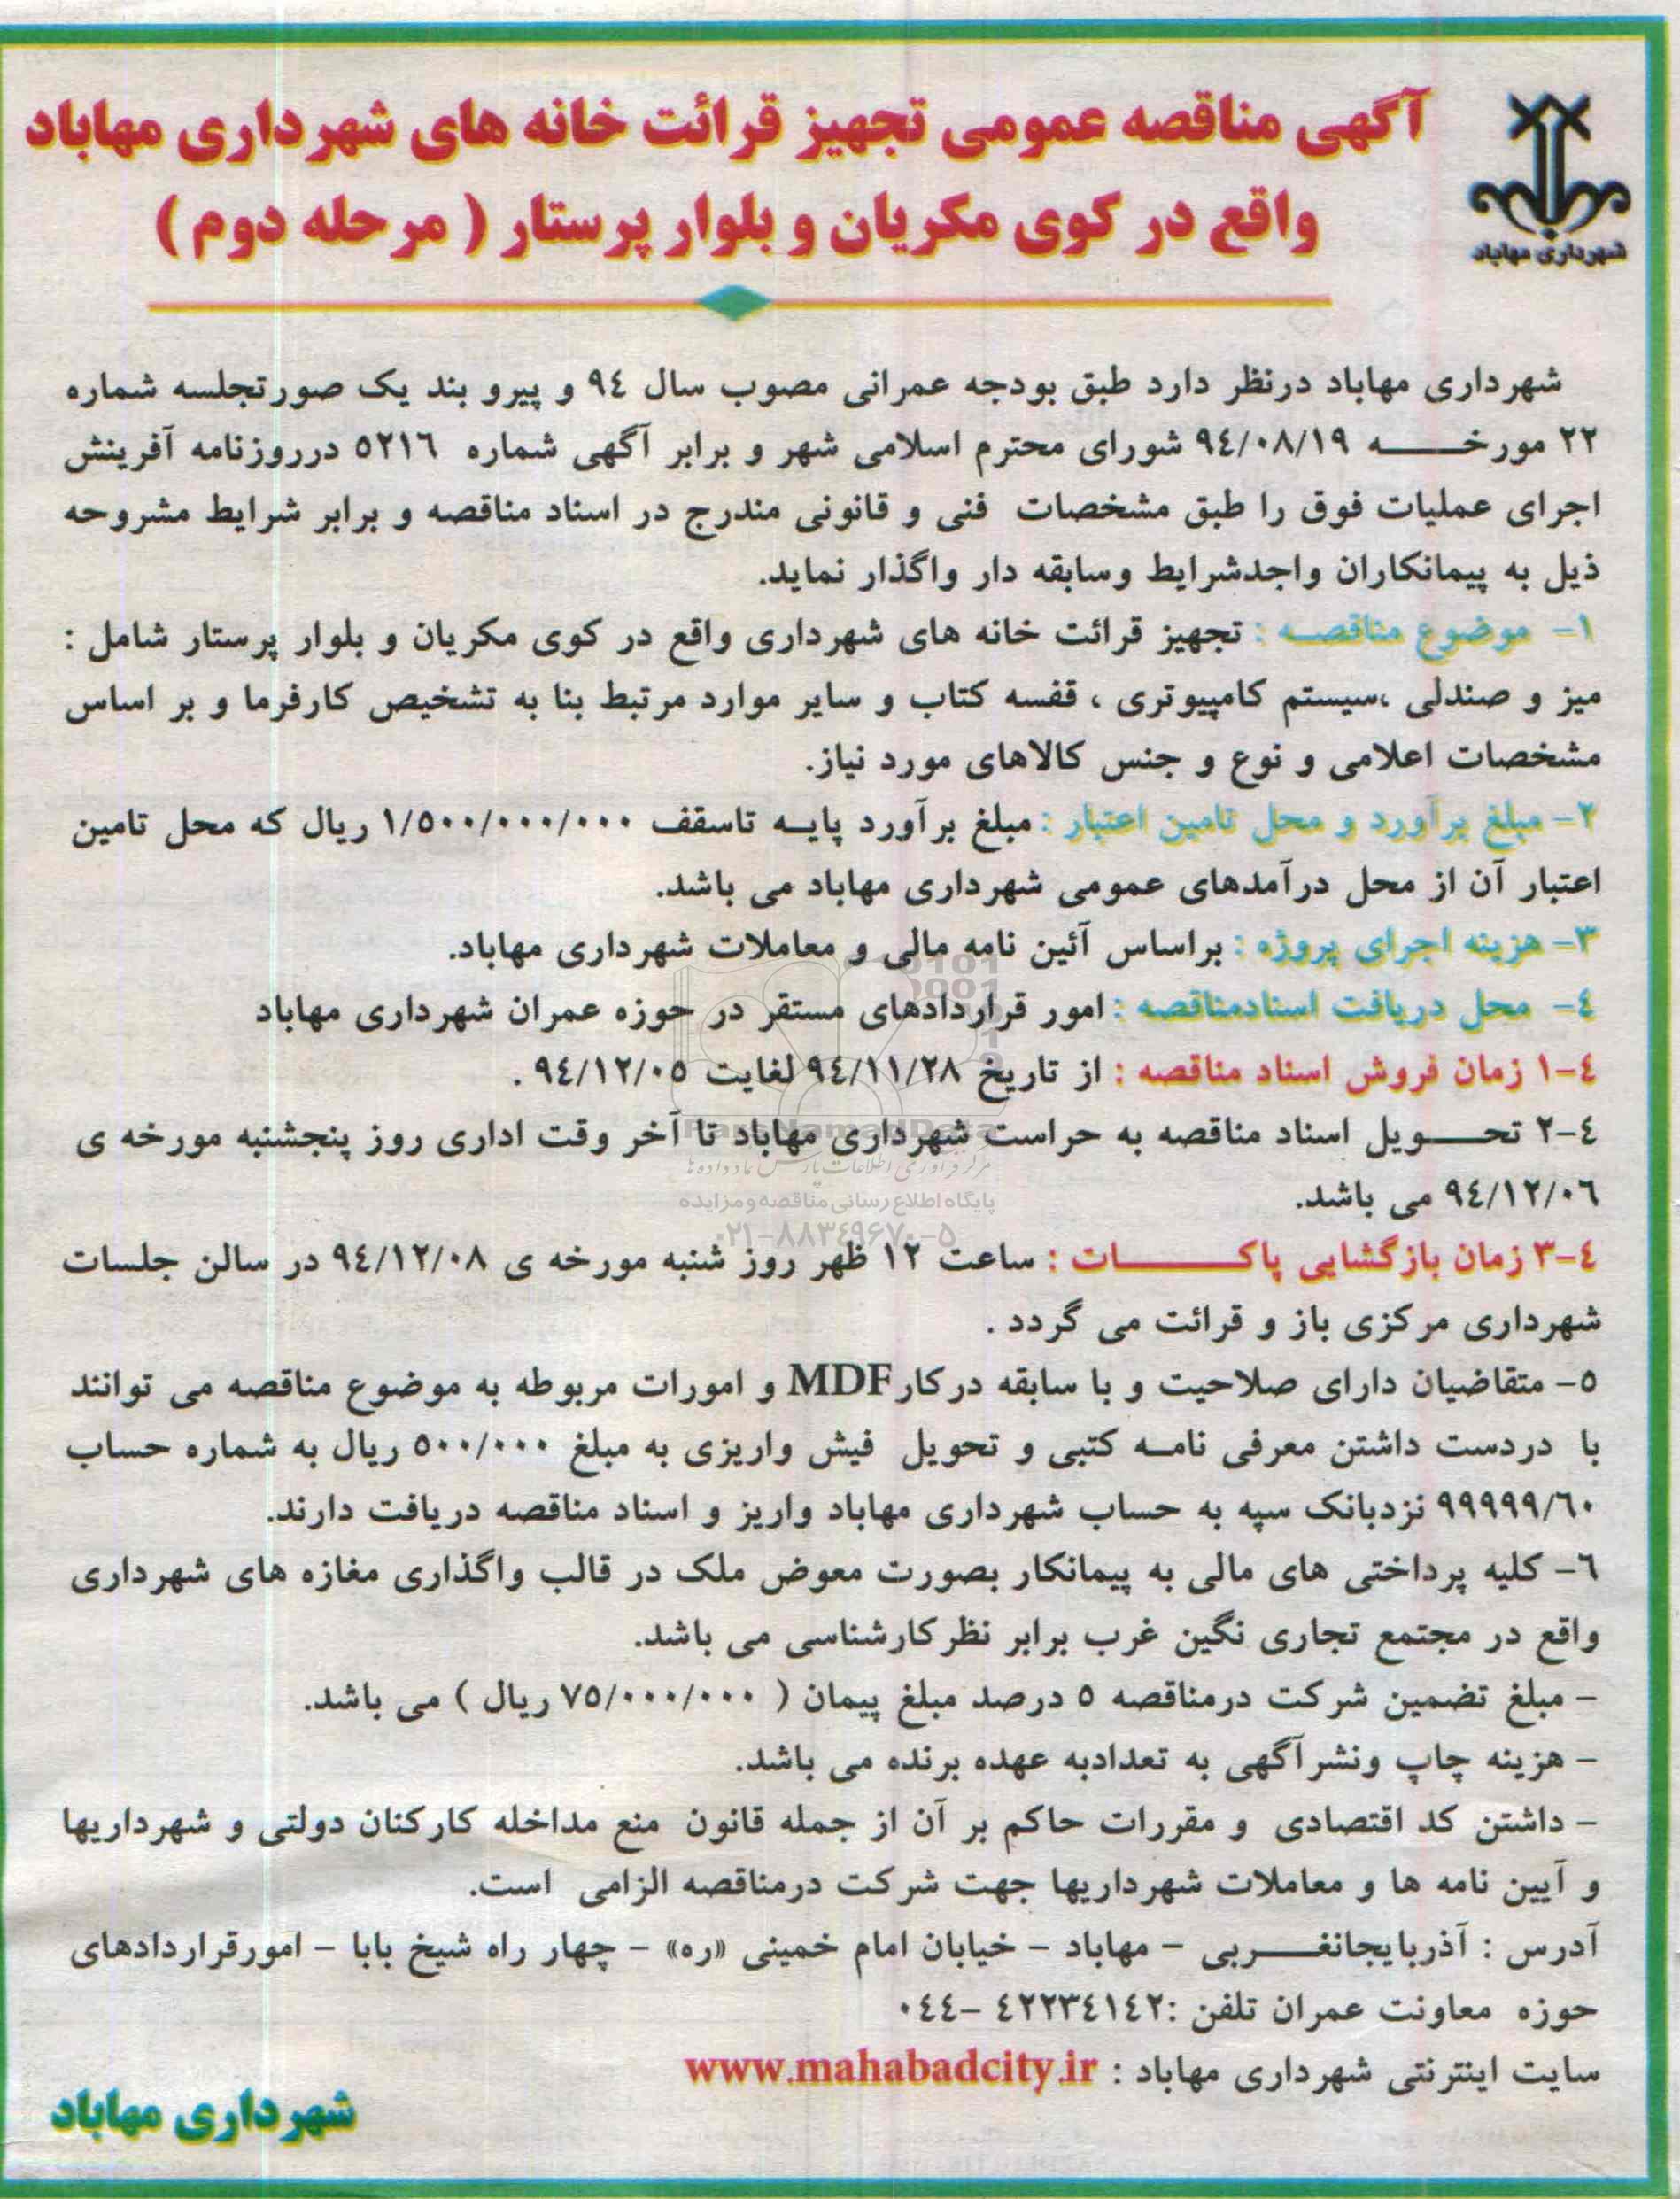 آگهی مناقصه عمومی تجهیز قرائت خانه های شهرداری مهاباد
واقع در کوی مکریان و بلوار پرستار ( مرحله دوم )
شهرداری مهاباد
شهرداری مهاباد درنظر دارد طبق بودجه عمرانی مصوب سال ٩٤ و پیرو بند یک صورتجلسه شماره
٢٢ مورخـــــه ٩٤/٠٨/١٩ شورای محترم اسلامی شهر و برابر آگهی شماره ٥٢١٦ درروزنامه آفرینش
اجرای عملیات فوق را طبق مشخصات فنی و قانونی مندرج در اسناد مناقصه و برابر شرایط مشروحه
ذیل به پیمانکاران واجدشرایط وسابقه دار واگذار نماید.
١- موضوع مناقصـه : تجهیز قرائت خانه های شهرداری واقع در کوی مکریان و بلوار پرستار شامل :
میز و صندلی ،سیستم کامپیوتری ، قفسه کتاب و سایر موارد مرتبط بنا به تشخیص کارفرما و بر اساس
مشخصات اعلامی و نوع و جنس کالاهای مورد نیاز.
٢- مبلغ برآورد و محل تامین اعتبار : مبلغ برآورد پایـه تاسقف ١/٥٠٠/٠٠٠/٠٠٠ ریال که محل تامین
اعتبار آن از محل درآمدهای عمومی شهرداری مهاباد می باشد.
٣- هزینه اجرای پروژه : براساس آئین نامه مالی و معاملات شهرداری مهاباد.
٤- محل دریافت اسنادمناقصه : امور قراردادهای مستقر در حوزه عمران شهرداری مهاباد
٤-١ زمان فروش اسناد مناقصه : از تاریخ ٩٤/١١/٢٨ لغایت ٩٤/١٢/٠٥ .
٤-٢ تحـــویل اسناد مناقصه به حراست شهرداری مهاباد تا آخر وقت اداری روز پنجشنبه مورخه ی
٩٤/١٢/٠٦ می باشد.
ParsNamadData
مرکز فرآوری اطلاعات پارس نماد داده ها
پایگاه اطلاع رسانی مناقصه و مزایده
۰۲۱-۸۸۳۴۹۶۷۰-۵
٤-٣ زمان بازگشایی پاکــــــات : ساعت ١٢ ظهر روز شنبه مورخه ی ٩٤/١٢/٠٨ در سالن جلسات
شهرداری مرکزی باز و قرائت می گردد .
٥- متقاضیان دارای صلاحیت و با سابقه درکارMDF و امورات مربوطه به موضوع مناقصه می توانند
با دردست داشتن معرفی نامـه کتبی و تحویل فیش واریزی به مبلغ ٥٠٠/٠٠٠ ریال به شماره حساب
٩٩٩٩٩/٦٠ نزدبانک سپه به حساب شهرداری مهاباد واریز و اسناد مناقصه دریافت دارند.
٦- کلیه پرداختی های مالی به پیمانکار بصورت معوض ملک در قالب واگذاری مغازه های شهرداری
واقع در مجتمع تجاری نگین غرب برابر نظرکارشناسی می باشد.
- مبلغ تضمین شرکت درمناقصه ٥ درصد مبلغ پیمان ( ٧٥/٠٠٠/٠٠٠ ریال ) می باشد.
- هزینه چاپ ونشرآگهی به تعدادبه عهده برنده می باشد.
- داشتن کد اقتصادی و مقررات حاکم بر آن از جمله قانون منع مداخله کارکنان دولتی و شهرداریها
و آیین نامه ها و معاملات شهرداریها جهت شرکت درمناقصه الزامی است.
آدرس : آذربایجانغـــربی - مهاباد - خیابان امام خمینی «ره» - چهار راه شیخ بابا - امورقراردادهای
حوزه معاونت عمران تلفن :٤٢٢٣٤١٤٢ -٠٤٤
سایت اینترنتی شهرداری مهاباد : www.mahabadcity.ir
شهرداری مهاباد